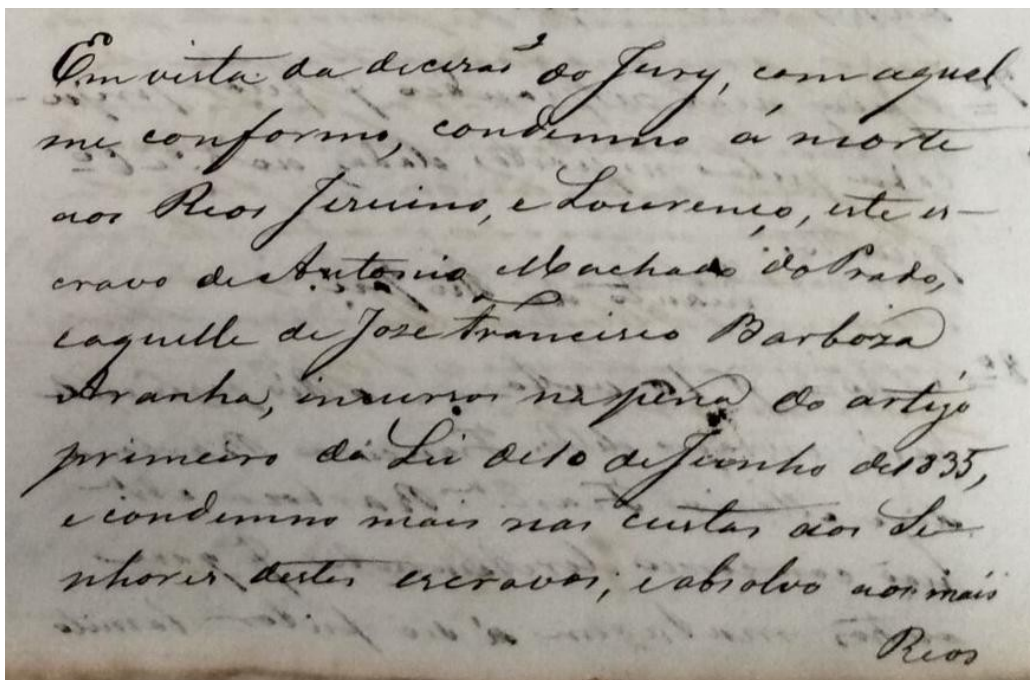 Em vista da decisaõ do Jury, com aqual
me conformo, condemno á morte
aos Reos Jeruino, e Lourenço, este es-
cravo de Antonio Machado do Prado,
eaquelle de Joze Francisco Barboza
Aranha, incursos na pena do artigo
primeiro da Lei de 10 de Junho de 1835,
e condemno mais nas custas aos Se-
nhores destes escravos; e absolvo aos mais
Reos